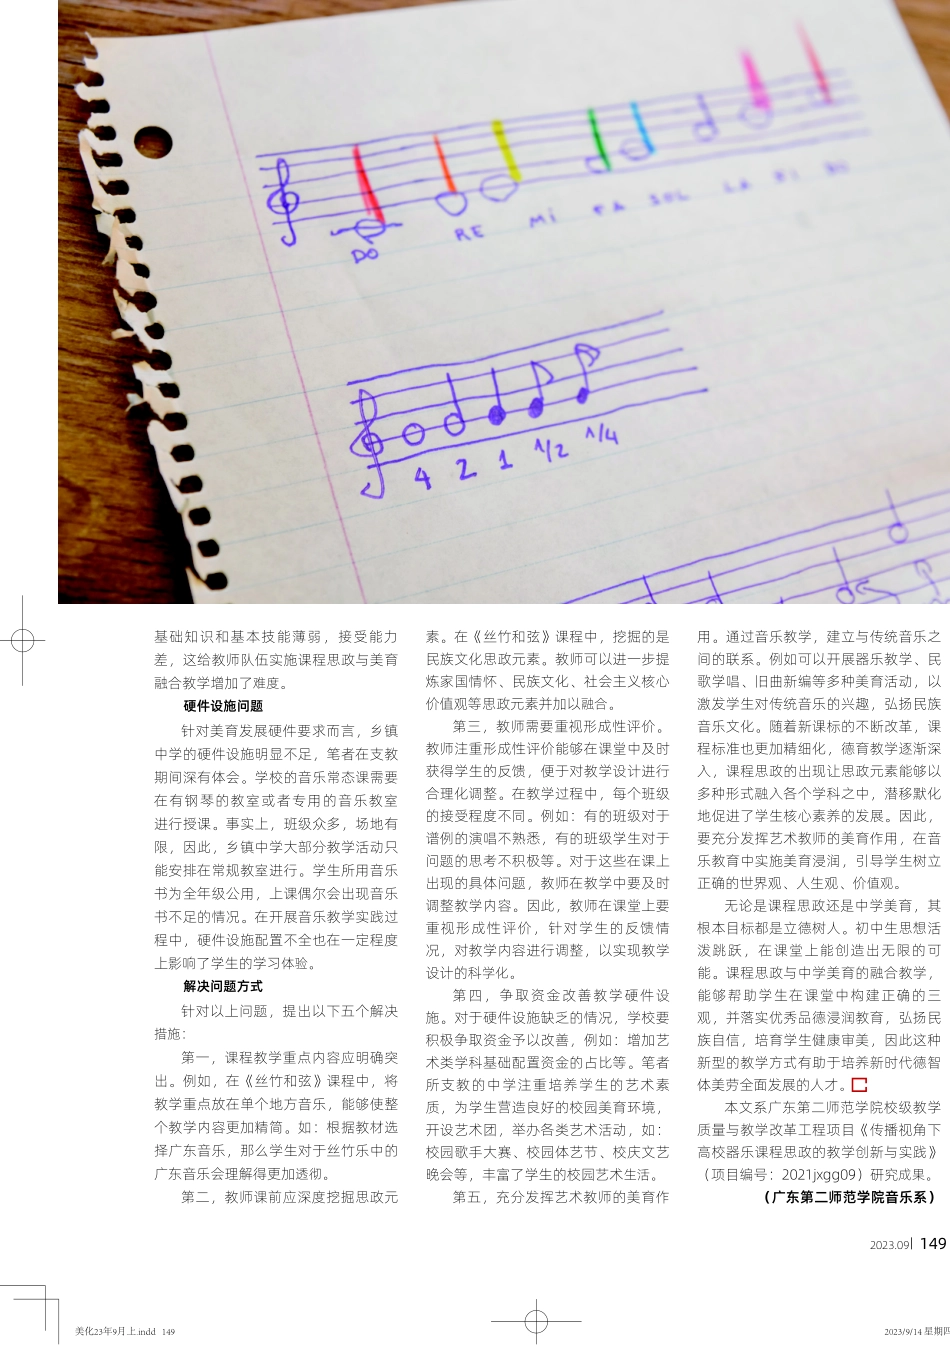 DO
RE
MI
FA
SOL
LA
SI
DO
4 2 1 1/2 1/4
基础知识和基本技能薄弱，接受能力
差，这给教师队伍实施课程思政与美育
融合教学增加了难度。
硬件设施问题
针对美育发展硬件要求而言，乡镇
中学的硬件设施明显不足，笔者在支教
期间深有体会。学校的音乐常态课需要
在有钢琴的教室或者专用的音乐教室
进行授课。事实上，班级众多，场地有
限，因此，乡镇中学大部分教学活动只
能安排在常规教室进行。学生所用音乐
书为全年级公用，上课偶尔会出现音乐
书不足的情况。在开展音乐教学实践过
程中，硬件设施配置不全也在一定程度
上影响了学生的学习体验。
解决问题方式
针对以上问题，提出以下五个解决
措施：
第一，课程教学重点内容应明确突
出。例如，在《丝竹和弦》课程中，将
教学重点放在单个地方音乐，能够使整
个教学内容更加精简。如：根据教材选
择广东音乐，那么学生对于丝竹乐中的
广东音乐会理解得更加透彻。
第二，教师课前应深度挖掘思政元
素。在《丝竹和弦》课程中，挖掘的是
民族文化思政元素。教师可以进一步提
炼家国情怀、民族文化、社会主义核心
价值观等思政元素并加以融合。
第三，教师需要重视形成性评价。
教师注重形成性评价能够在课堂中及时
获得学生的反馈，便于对教学设计进行
合理化调整。在教学过程中，每个班级
的接受程度不同。例如：有的班级对于
谱例的演唱不熟悉，有的班级学生对于
问题的思考不积极等。对于这些在课上
出现的具体问题，教师在教学中要及时
调整教学内容。因此，教师在课堂上要
重视形成性评价，针对学生的反馈情
况，对教学内容进行调整，以实现教学
设计的科学化。
第四，争取资金改善教学硬件设
施。对于硬件设施缺乏的情况，学校要
积极争取资金予以改善，例如：增加艺
术类学科基础配置资金的占比等。笔者
所支教的中学注重培养学生的艺术素
质，为学生营造良好的校园美育环境，
开设艺术团，举办各类艺术活动，如：
校园歌手大赛、校园体艺节、校庆文艺
晚会等，丰富了学生的校园艺术生活。
第五，充分发挥艺术教师的美育作
用。通过音乐教学，建立与传统音乐之
间的联系。例如可以开展器乐教学、民
歌学唱、旧曲新编等多种美育活动，以
激发学生对传统音乐的兴趣，弘扬民族
音乐文化。随着新课标的不断改革，课
程标准也更加精细化，德育教学逐渐深
入，课程思政的出现让思政元素能够以
多种形式融入各个学科之中，潜移默化
地促进了学生核心素养的发展。因此，
要充分发挥艺术教师的美育作用，在音
乐教育中实施美育浸润，引导学生树立
正确的世界观、人生观、价值观。
无论是课程思政还是中学美育，其
根本目标都是立德树人。初中生思想活
泼跳跃，在课堂上能创造出无限的可
能。课程思政与中学美育的融合教学，
能够帮助学生在课堂中构建正确的三
观，并落实优秀品德浸润教育，弘扬民
族自信，培育学生健康审美，因此这种
新型的教学方式有助于培养新时代德智
体美劳全面发展的人才。
本文系广东第二师范学院校级教学
质量与教学改革工程项目《传播视角下
高校器乐课程思政的教学创新与实践》
（项目编号：2021jxgg09）研究成果。
（广东第二师范学院音乐系）
2023.09 | 149
美化23年9月上.indd 149
2023/9/14 星期四